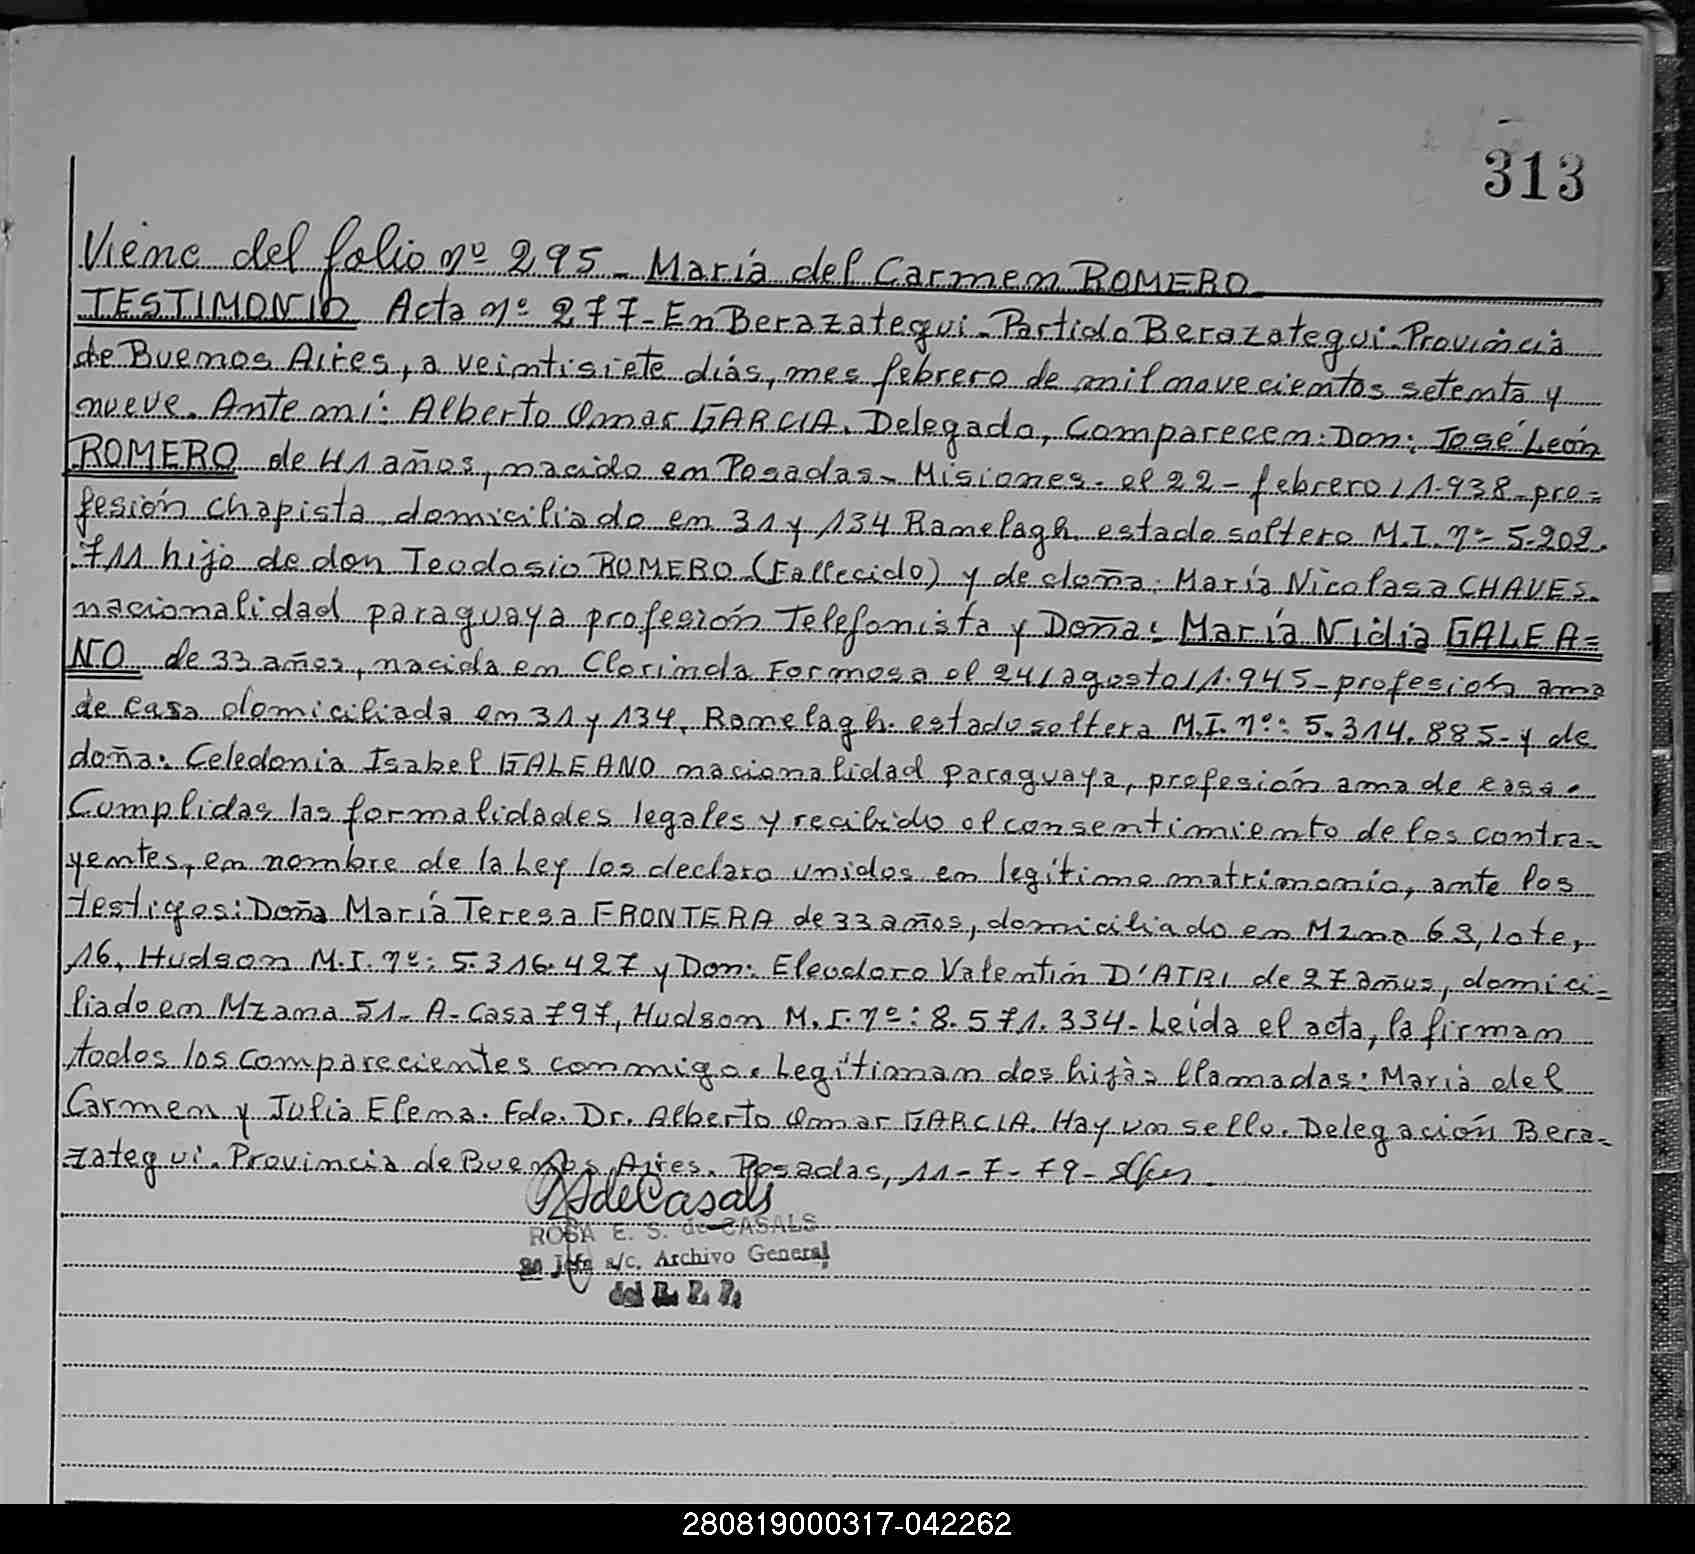 313
Viene del folio nº 295 - María del Carmen ROMERO
TESTIMONIO Acta nº 277 - En Berazategui - Partido Berazategui - Provincia
de Buenos Aires, a veintisiete días, mes febrero de mil novecientos setenta y
nueve. Ante mí: Alberto Omar GARCIA. Delegado, Comparecen: Don: José León
ROMERO de 41 años, nacido en Posadas - Misiones - el 22 - febrero / 1.938 - pro=
fesión chapista domiciliado en 31 y 134 Ranelagh estado soltero M.I. nº 5.202.
711 hijo de don Teodosio ROMERO (Fallecido) y de doña: María Nicolasa CHAVES.
nacionalidad paraguaya profesión Telefonista y Doña: María Nidia GALEA=
NO de 33 años, nacida en Clorinda Formosa el 24 / agosto / 1.945 - profesión ama
de casa domiciliada en 31 y 134, Ranelagh. estado soltera M.I. nº: 5.314.885 - y de
doña: Celedonia Isabel GALEANO nacionalidad paraguaya, profesión ama de casa.
Cumplidas las formalidades legales y recibido el consentimiento de los contra=
yentes, en nombre de la Ley los declaro unidos en legítimo matrimonio, ante los
testigos: Doña María Teresa FRONTERA de 33 años, domiciliado en Mzna 63, lote,
16, Hudson M.I. nº: 5.316.427 y Don: Eleodoro Valentín D'ATRI de 27 años, domici=
liado en Mzana 51 - A - Casa 797, Hudson M.I. nº: 8.571.334 - Leída el acta, la firman
todos los comparecientes conmigo. Legitiman dos hijas llamadas: María del
Carmen y Julia Elena. Fdo. Dr. Alberto Omar GARCIA. Hay un sello. Delegación Bera=
zategui. Provincia de Buenos Aires. Posadas, 11 - 7 - 79 -
deCasals
ROSA E. S. de CASALS
2a Jefe a/c. Archivo General
del R. P. P.
280819000317-042262